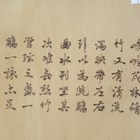 領茂林脩
竹又有清流激
湍暎帶左右
引以為流觴
曲水列坐其
次雖無絲竹
管弦之盛一
觴一詠亦足